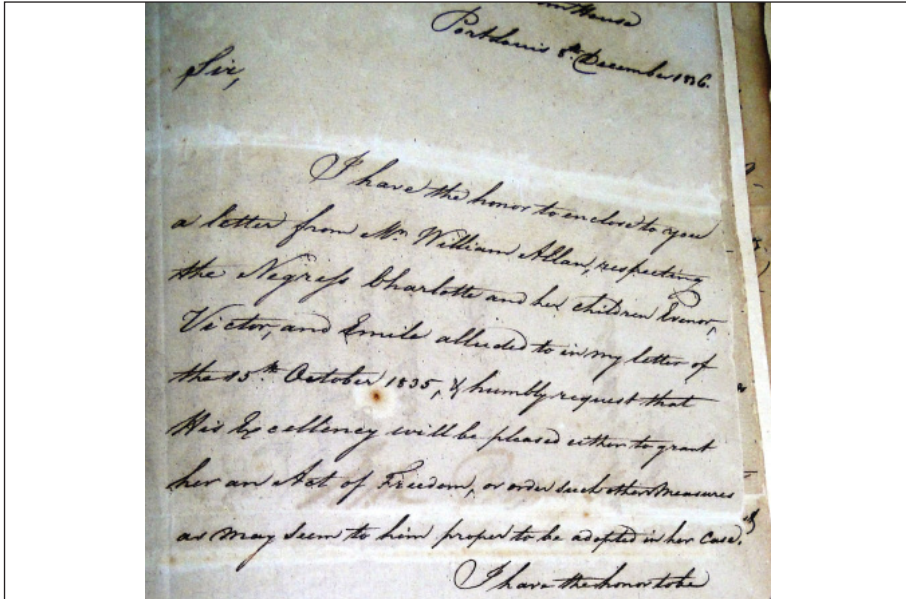 House
Port Louis 8th December 1836.
Sir,
I have the honor to enclose to you
a letter from Mr. William Allan, respecting
the Negress Charlotte and her children Evenor,
Victor, and Emile alluded to in my letter of
the 15th October 1835, & humbly request that
His Excellency will be pleased either to grant
her an Act of Freedom, or order such other measures
as may seem to him proper to be adopted in her case.
I have the honor to be